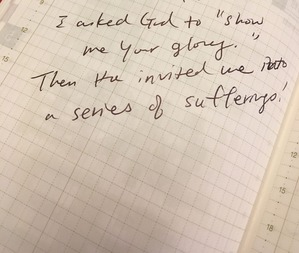 I asked God to "show
me your glory."
Then He invited me into
a series of sufferings!
15
12
15
18